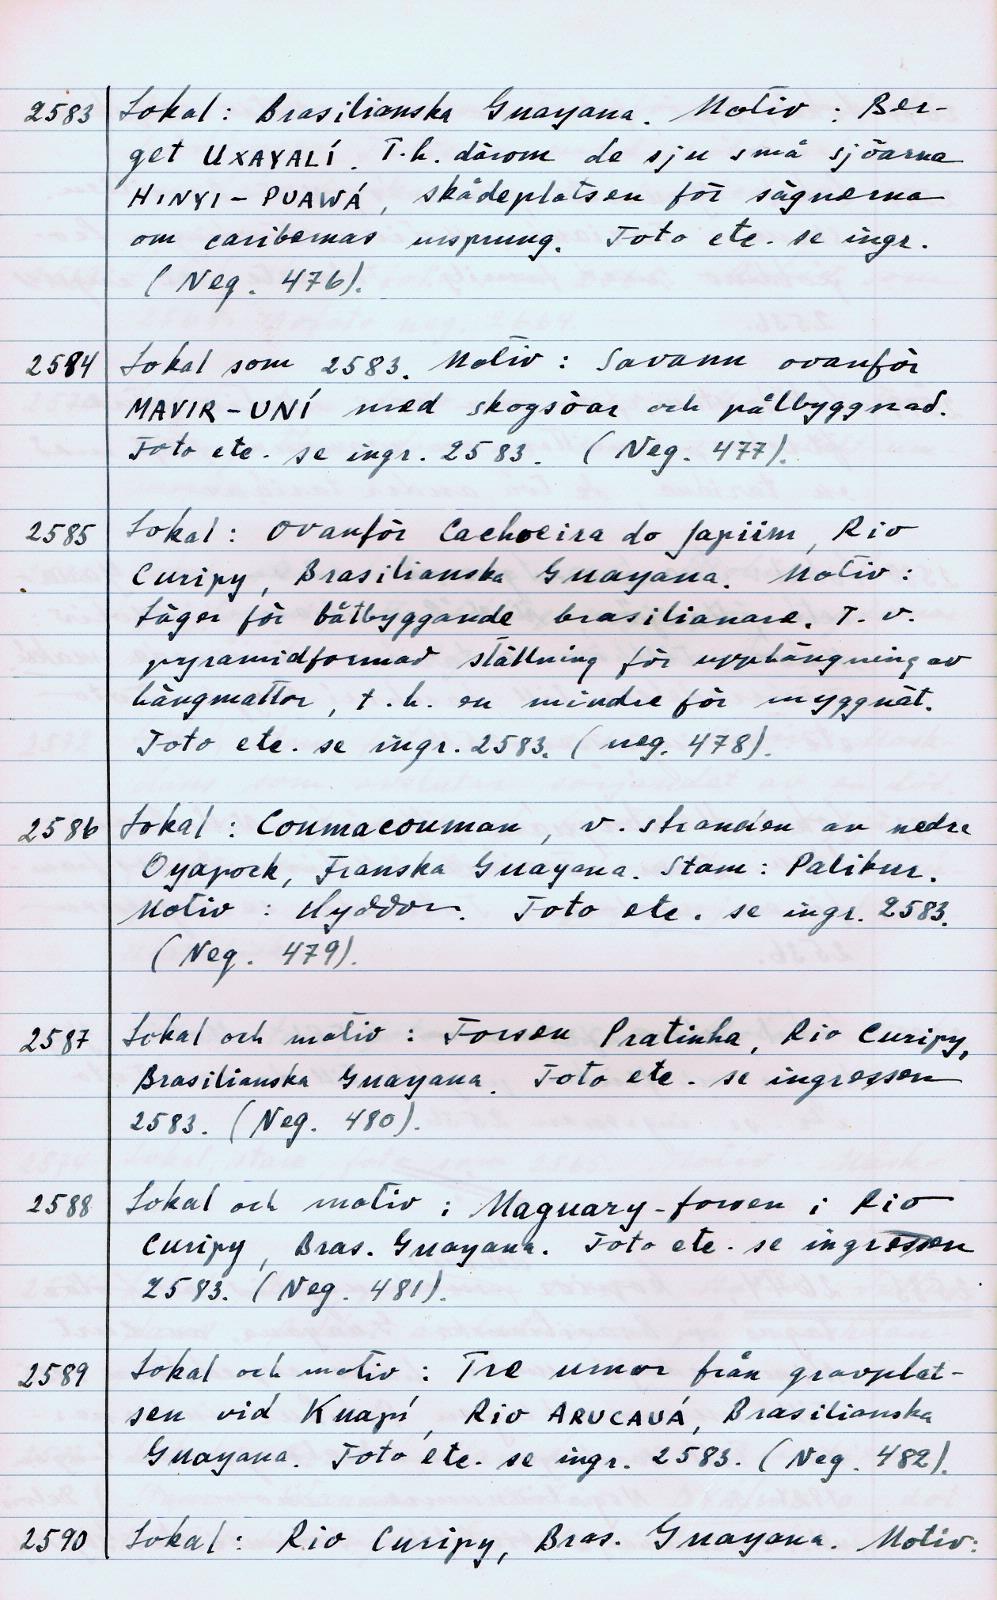 2583 Lokal: Brasilianska Guayana. Motiv: Ber-
get UXAYALÍ. T.h. därom de sju små sjöarna
HINYI-PUAWÁ, skådeplatsen för sägnerna
om caribernas ursprung. Foto etc. se ingr.
(Neg. 476).
2584 Lokal som 2583. Motiv: Savann ovanför
MAVIR-UNÍ med skogsöar och pålbyggnad.
Foto etc. se ingr. 2583. (Neg. 477).
2585 Lokal: Ovanför Cachoeira do Japiim, Rio
Curipy, Brasilianska Guayana. Motiv:
Läger för båtbyggande brasilianare. T.v.
pyramidformad ställning för upphängning av
hängmattor, t.h. en mindre för myggnät.
Foto etc. se ingr. 2583. (neg. 478).
2586 Lokal: Coumacouman, v. stranden av nedre
Oyapock, Franska Guayana. Stam: Palikur.
Motiv: Hyddor. Foto etc. se ingr. 2583.
(Neg. 479).
2587 Lokal och motiv: Forsen Pratinha, Rio Curipy,
Brasilianska Guayana. Foto etc. se ingressen
2583. (Neg. 480).
2588 Lokal och motiv: Maguary-forsen i Rio
Curipy, Bras. Guayana. Foto etc. se ingressen
2583. (Neg. 481).
2589 Lokal och motiv: Tre urnor från gravplat-
sen vid Kuapí, Rio ARUCAUÁ, Brasilianska
Guayana. Foto etc. se ingr. 2583. (Neg. 482).
2590 Lokal: Rio Curipy, Bras. Guayana. Motiv: